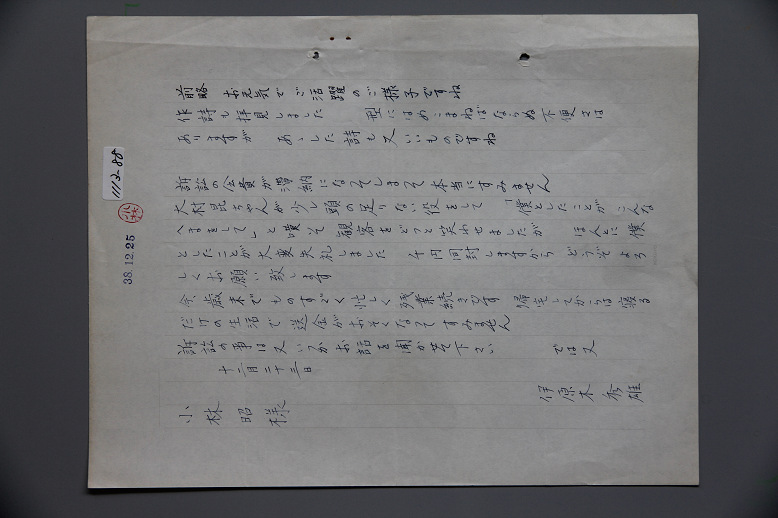 前略　お元気でご活躍のご様子ですね
作詩も拝見しました　型にはめこまねばならぬ不便さは
ありますが　あゝした詩も又いいものですね
訴訟の会費が滞納になってしまって本当にすみません
大村昆ちゃんが少し頭の足りない役をして　「僕としたことがこんな
へまをして」と嘆いて観客をどっと笑わせましたが　ほんとに僕
としたことが大変失礼しました　千円同封しますから　どうぞよろ
しくお願い致します
今、歳末でものすごく忙しく残業続きです　帰宅してからは寝る
だけの生活で送金がおそくなってすみません
訴訟の事は又いつかお話を聞かせて下さい　では又
十二月二十三日
伊原木秀雄
小林昭様
38.12.25
1112-88